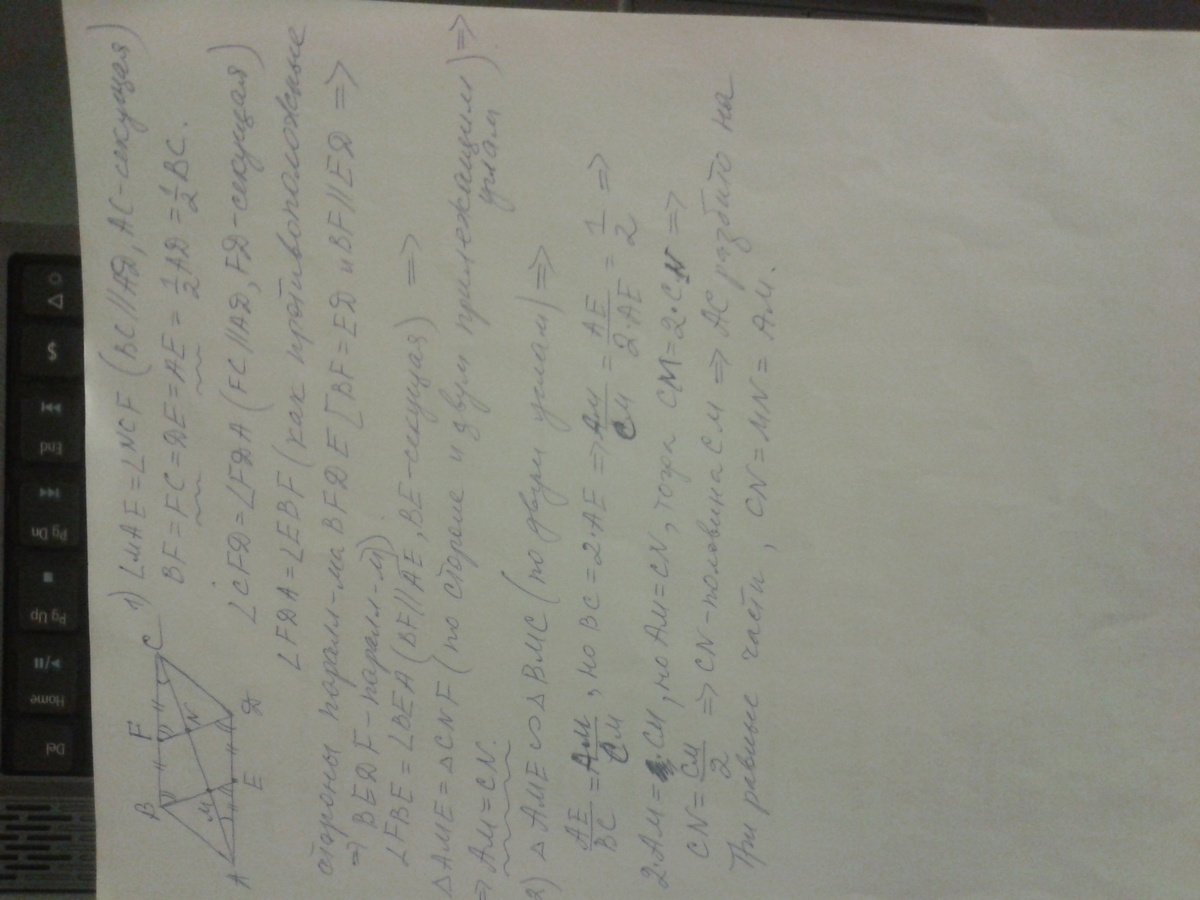 B F C
M N
A E D
1) ∠MAE = ∠NCF (BC//AD, AC-секущая)
BF = FC = DE = AE = 1/2 AD = 1/2 BC.
∠CFD = ∠FDA (FC//AD, FD-секущая)
∠FDA = ∠EBF (как противоположные
стороны паралл-ма BFDE [BF = ED и BF//ED ⇒
⇒ BEDF-паралл-м)
∠FBE = ∠BEA (BF//AE, BE-секущая) ⇒
△AME = △CNF (по стороне и двум прилежащим углам) ⇒
⇒ AM = CN.
2) △AME ∽ △BMC (по двум углам) ⇒
AE/BC = AM/CM, но BC = 2·AE ⇒ AM/CM = AE/2·AE = 1/2 ⇒
2·AM = CM, но AM = CN, тогда CM = 2·CN ⇒
CN = CM/2 ⇒ CN-половина CM ⇒ AC разбито на
три равные части, CN = MN = AM.
Del
Home
Pg Up
Pg Dn
End
$